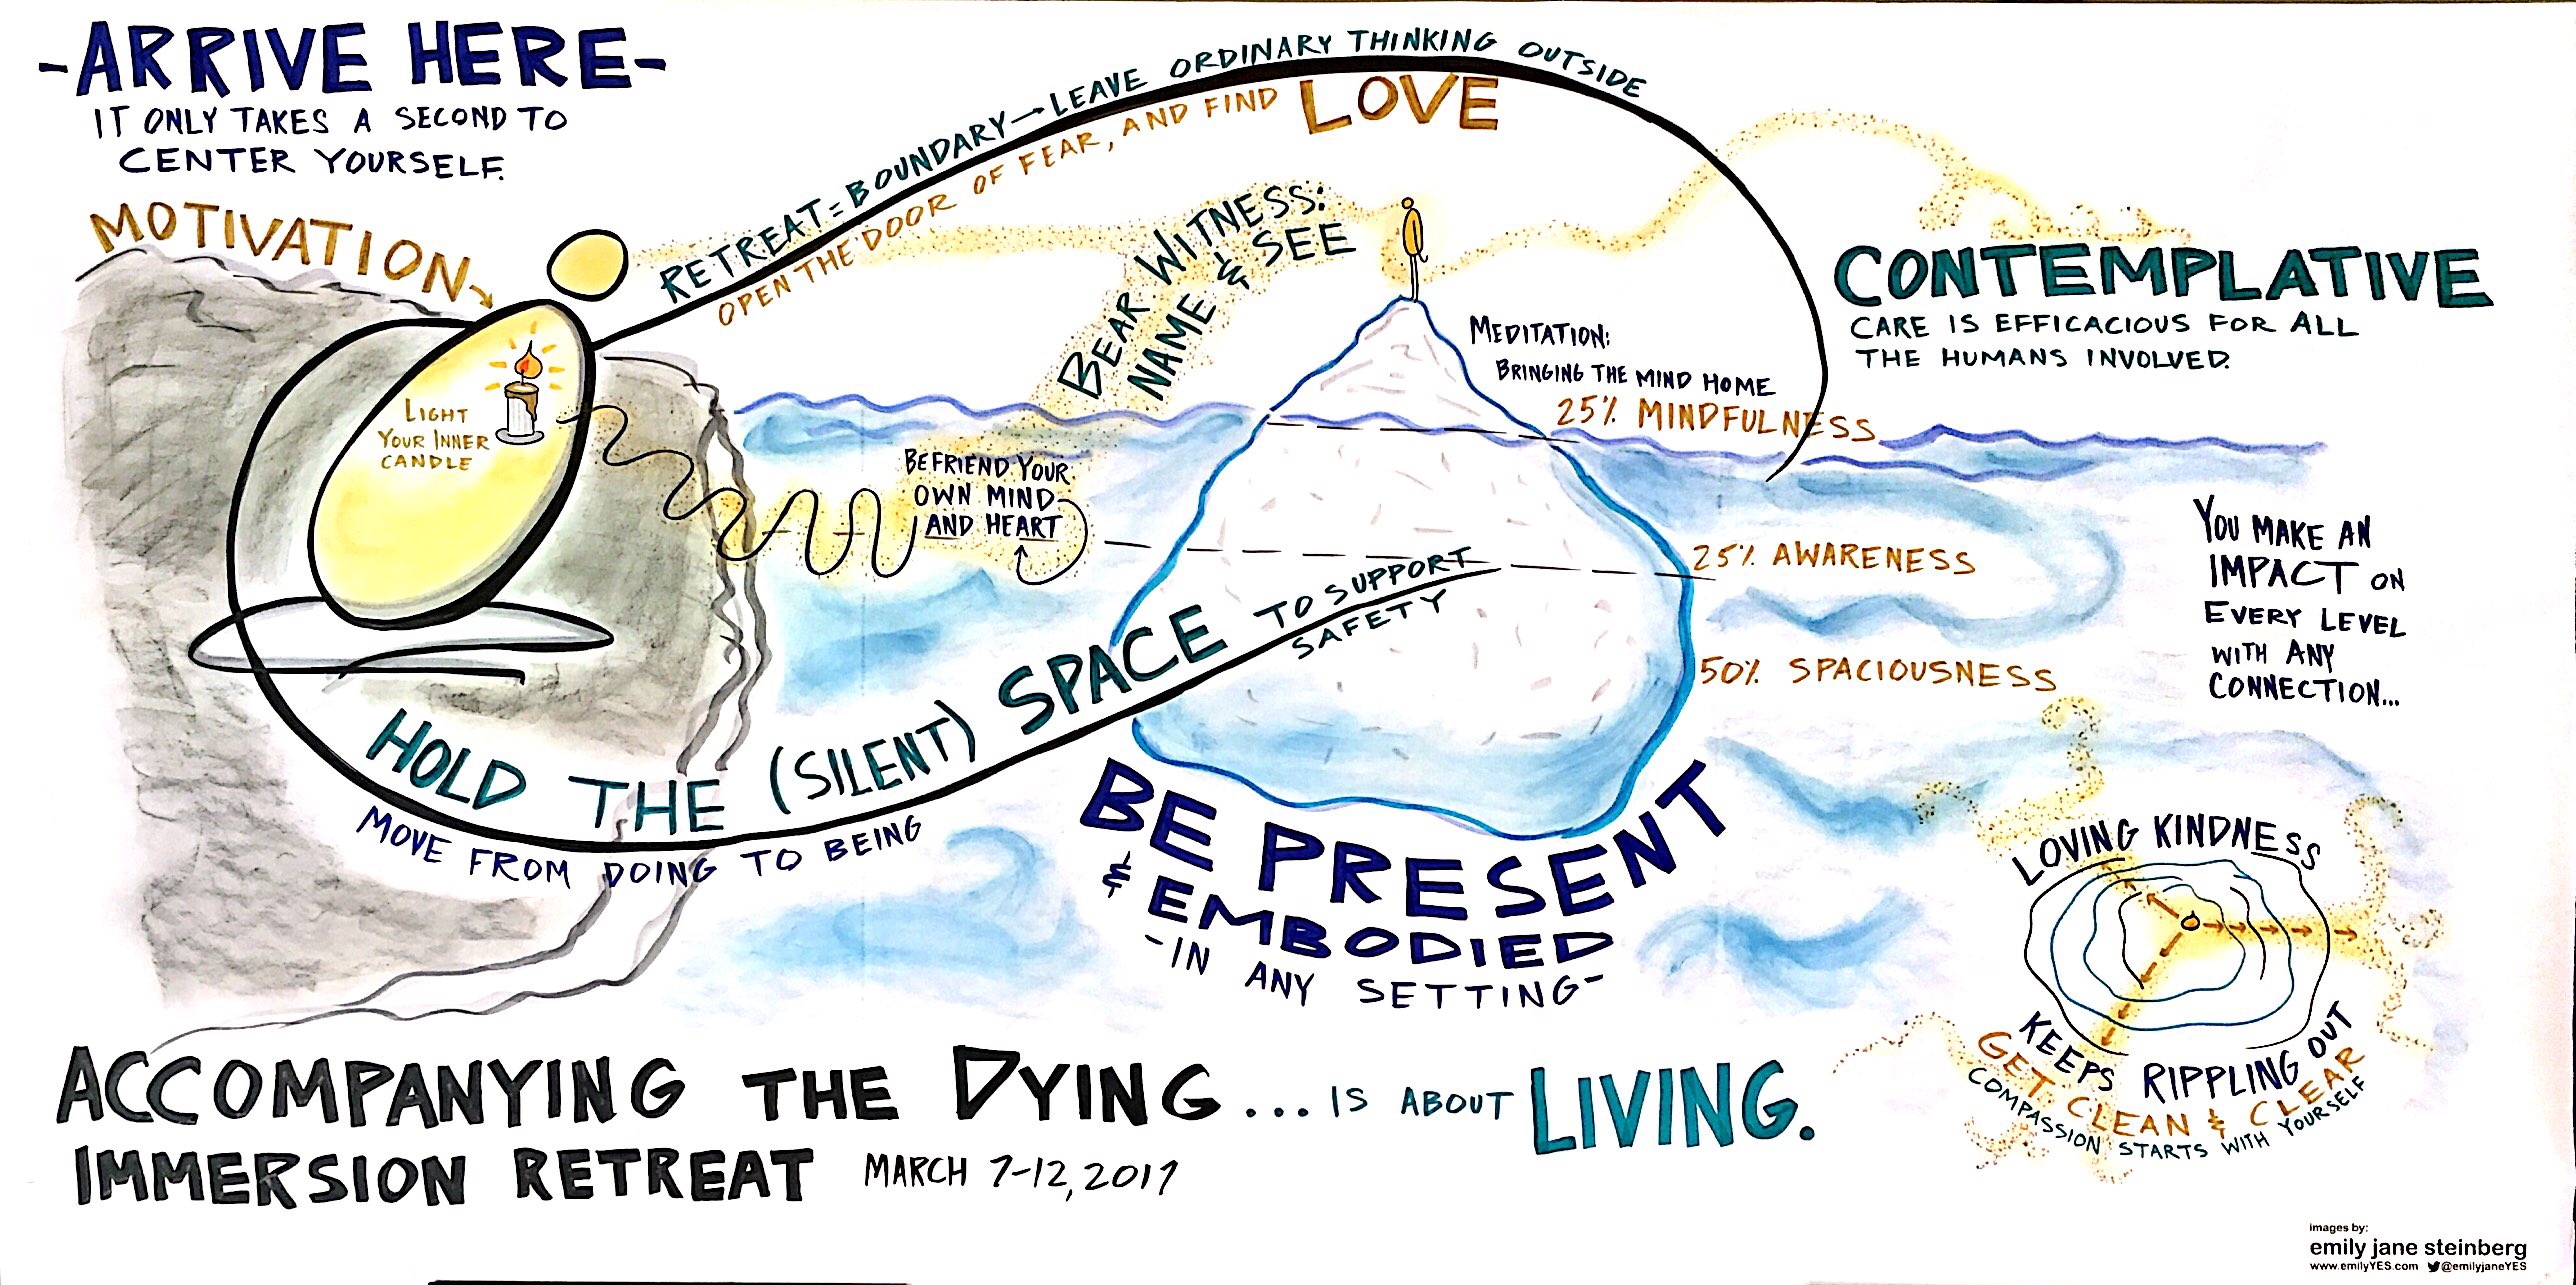 -ARRIVE HERE-
IT ONLY TAKES A SECOND TO
CENTER YOURSELF.
MOTIVATION
LIGHT
YOUR INNER
CANDLE
RETREAT = BOUNDARY → LEAVE ORDINARY THINKING OUTSIDE
OPEN THE DOOR OF FEAR, AND FIND LOVE
BEAR WITNESS:
NAME & SEE
MEDITATION:
BRINGING THE MIND HOME
25% MINDFULNESS
25% AWARENESS
50% SPACIOUSNESS
CONTEMPLATIVE
CARE IS EFFICACIOUS FOR ALL
THE HUMANS INVOLVED.
BEFRIEND YOUR
OWN MIND
AND HEART
HOLD THE (SILENT) SPACE TO SUPPORT
SAFETY
MOVE FROM DOING TO BEING
BE PRESENT
& EMBODIED
-IN ANY SETTING-
YOU MAKE AN
IMPACT ON
EVERY LEVEL
WITH ANY
CONNECTION...
LOVING KINDNESS
KEEPS RIPPLING OUT
GET CLEAN & CLEAR
COMPASSION STARTS WITH YOURSELF
ACCOMPANYING THE DYING ... IS ABOUT LIVING.
IMMERSION RETREAT MARCH 7-12, 2017
images by:
emily jane steinberg
www.emilyYES.com @emilyjaneYES